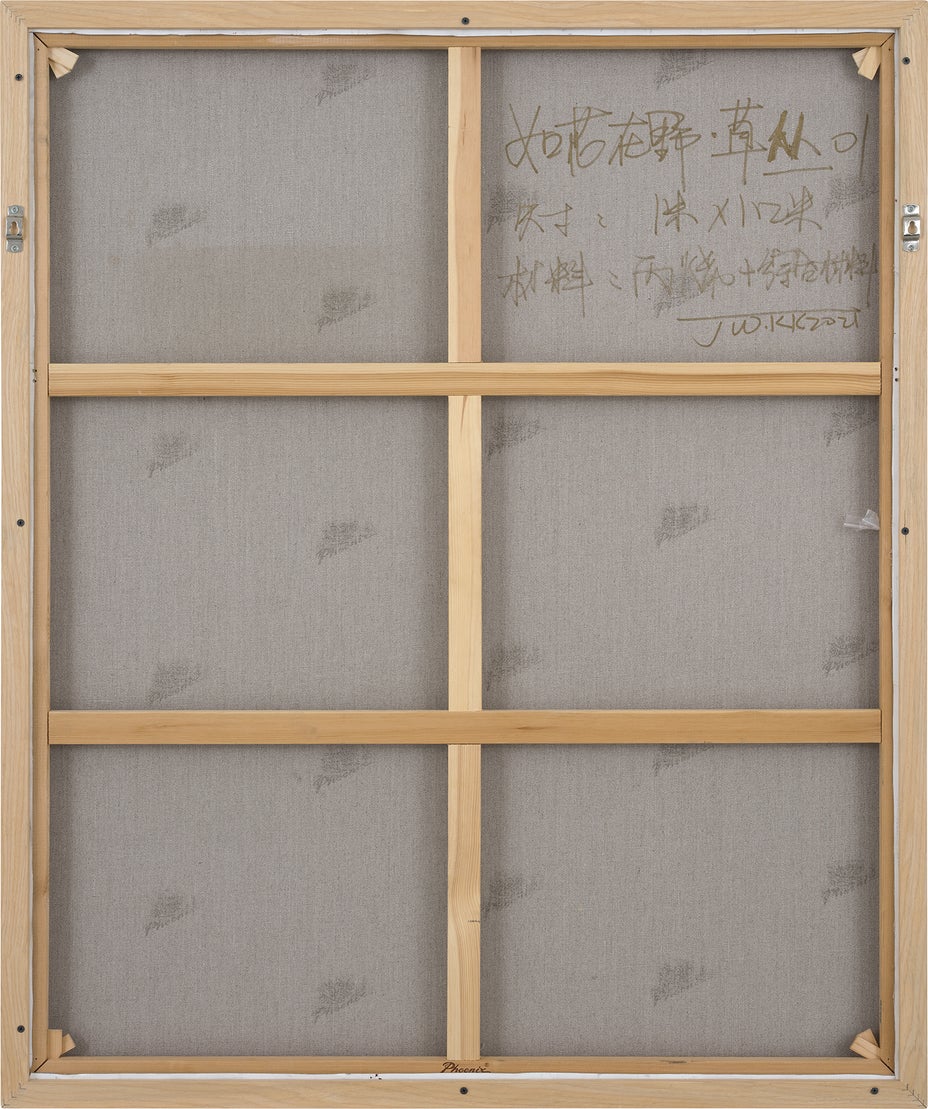 如若在野·草丛01
尺寸：1米X1.2米
材料：丙烯+综合材料
JW.KK2021
Phoenix